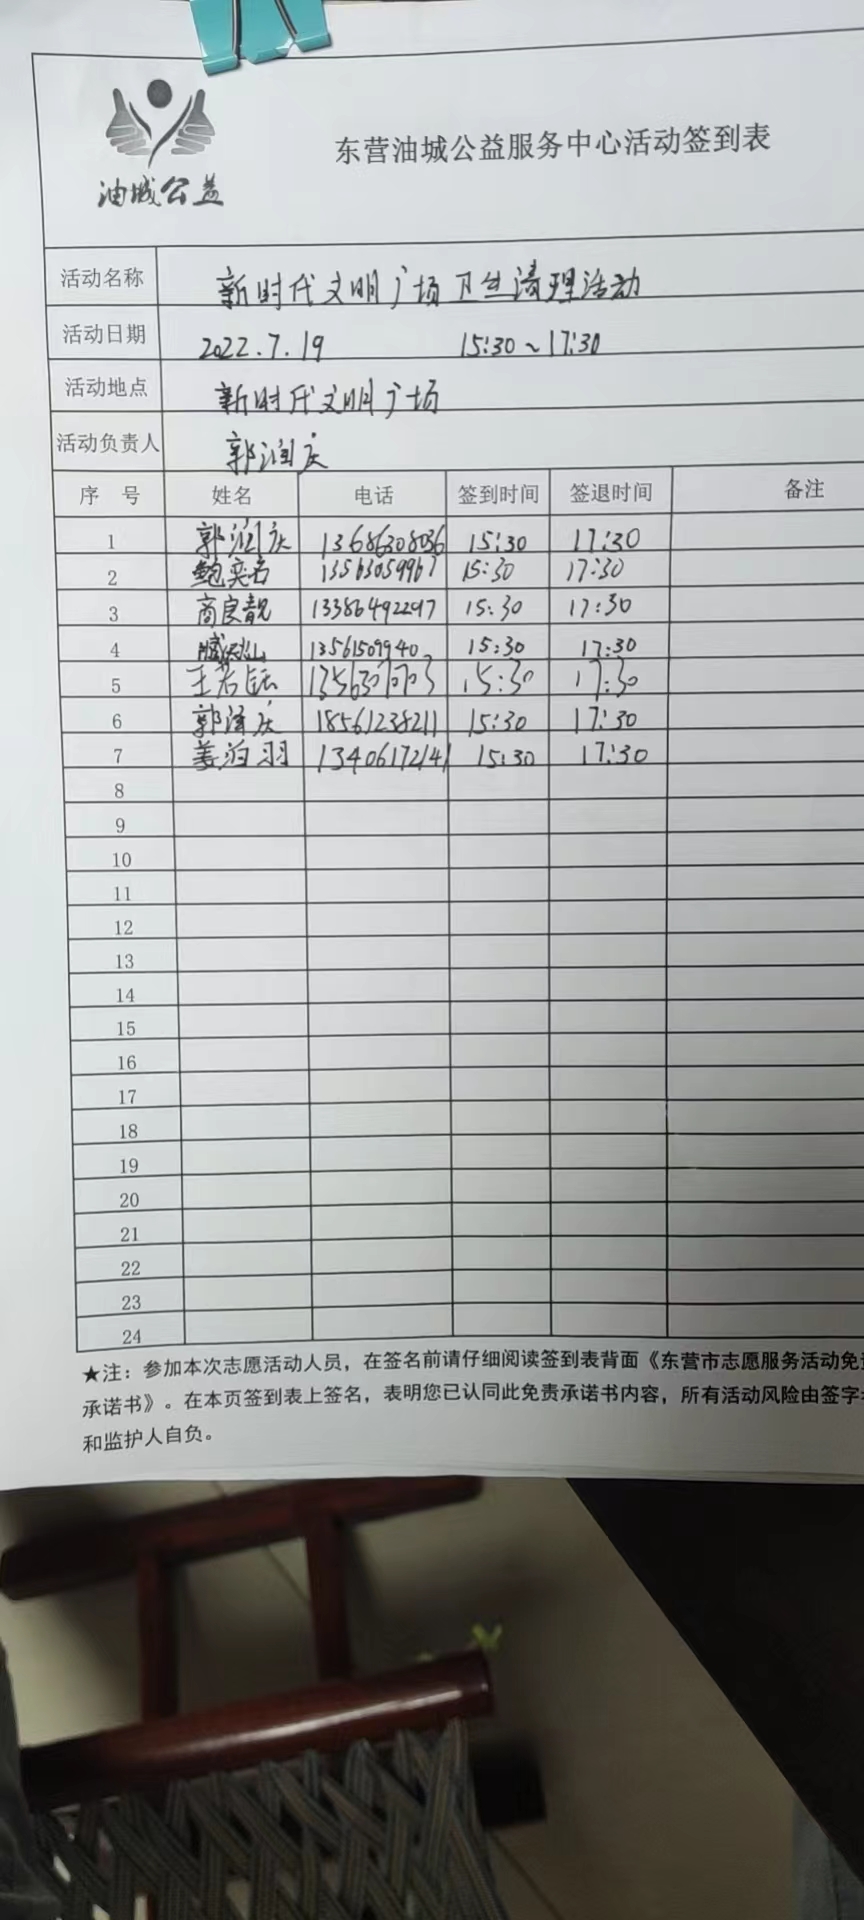 油城公益
东营油城公益服务中心活动签到表
活动名称 新时代文明广场卫生清理活动
活动日期 2022.7.19 15:30~17:30
活动地点 新时代文明广场
活动负责人 郭润庆
序号 姓名 电话 签到时间 签退时间 备注
1 郭润庆 13686308036 15:30 17:30
2 鲍奕名 13563059967 15:30 17:30
3 商良靓 13386492297 15:30 17:30
4 13561509940 15:30 17:30
5 15:30 17:30
6 郭泽庆 18561238211 15:30 17:30
7 姜泊羽 13406172141 15:30 17:30
8
9
10
11
12
13
14
15
16
17
18
19
20
21
22
23
24
★注：参加本次志愿活动人员，在签名前请仔细阅读签到表背面《东营市志愿服务活动免责
承诺书》。在本页签到表上签名，表明您已认同此免责承诺书内容，所有活动风险由签字
和监护人自负。